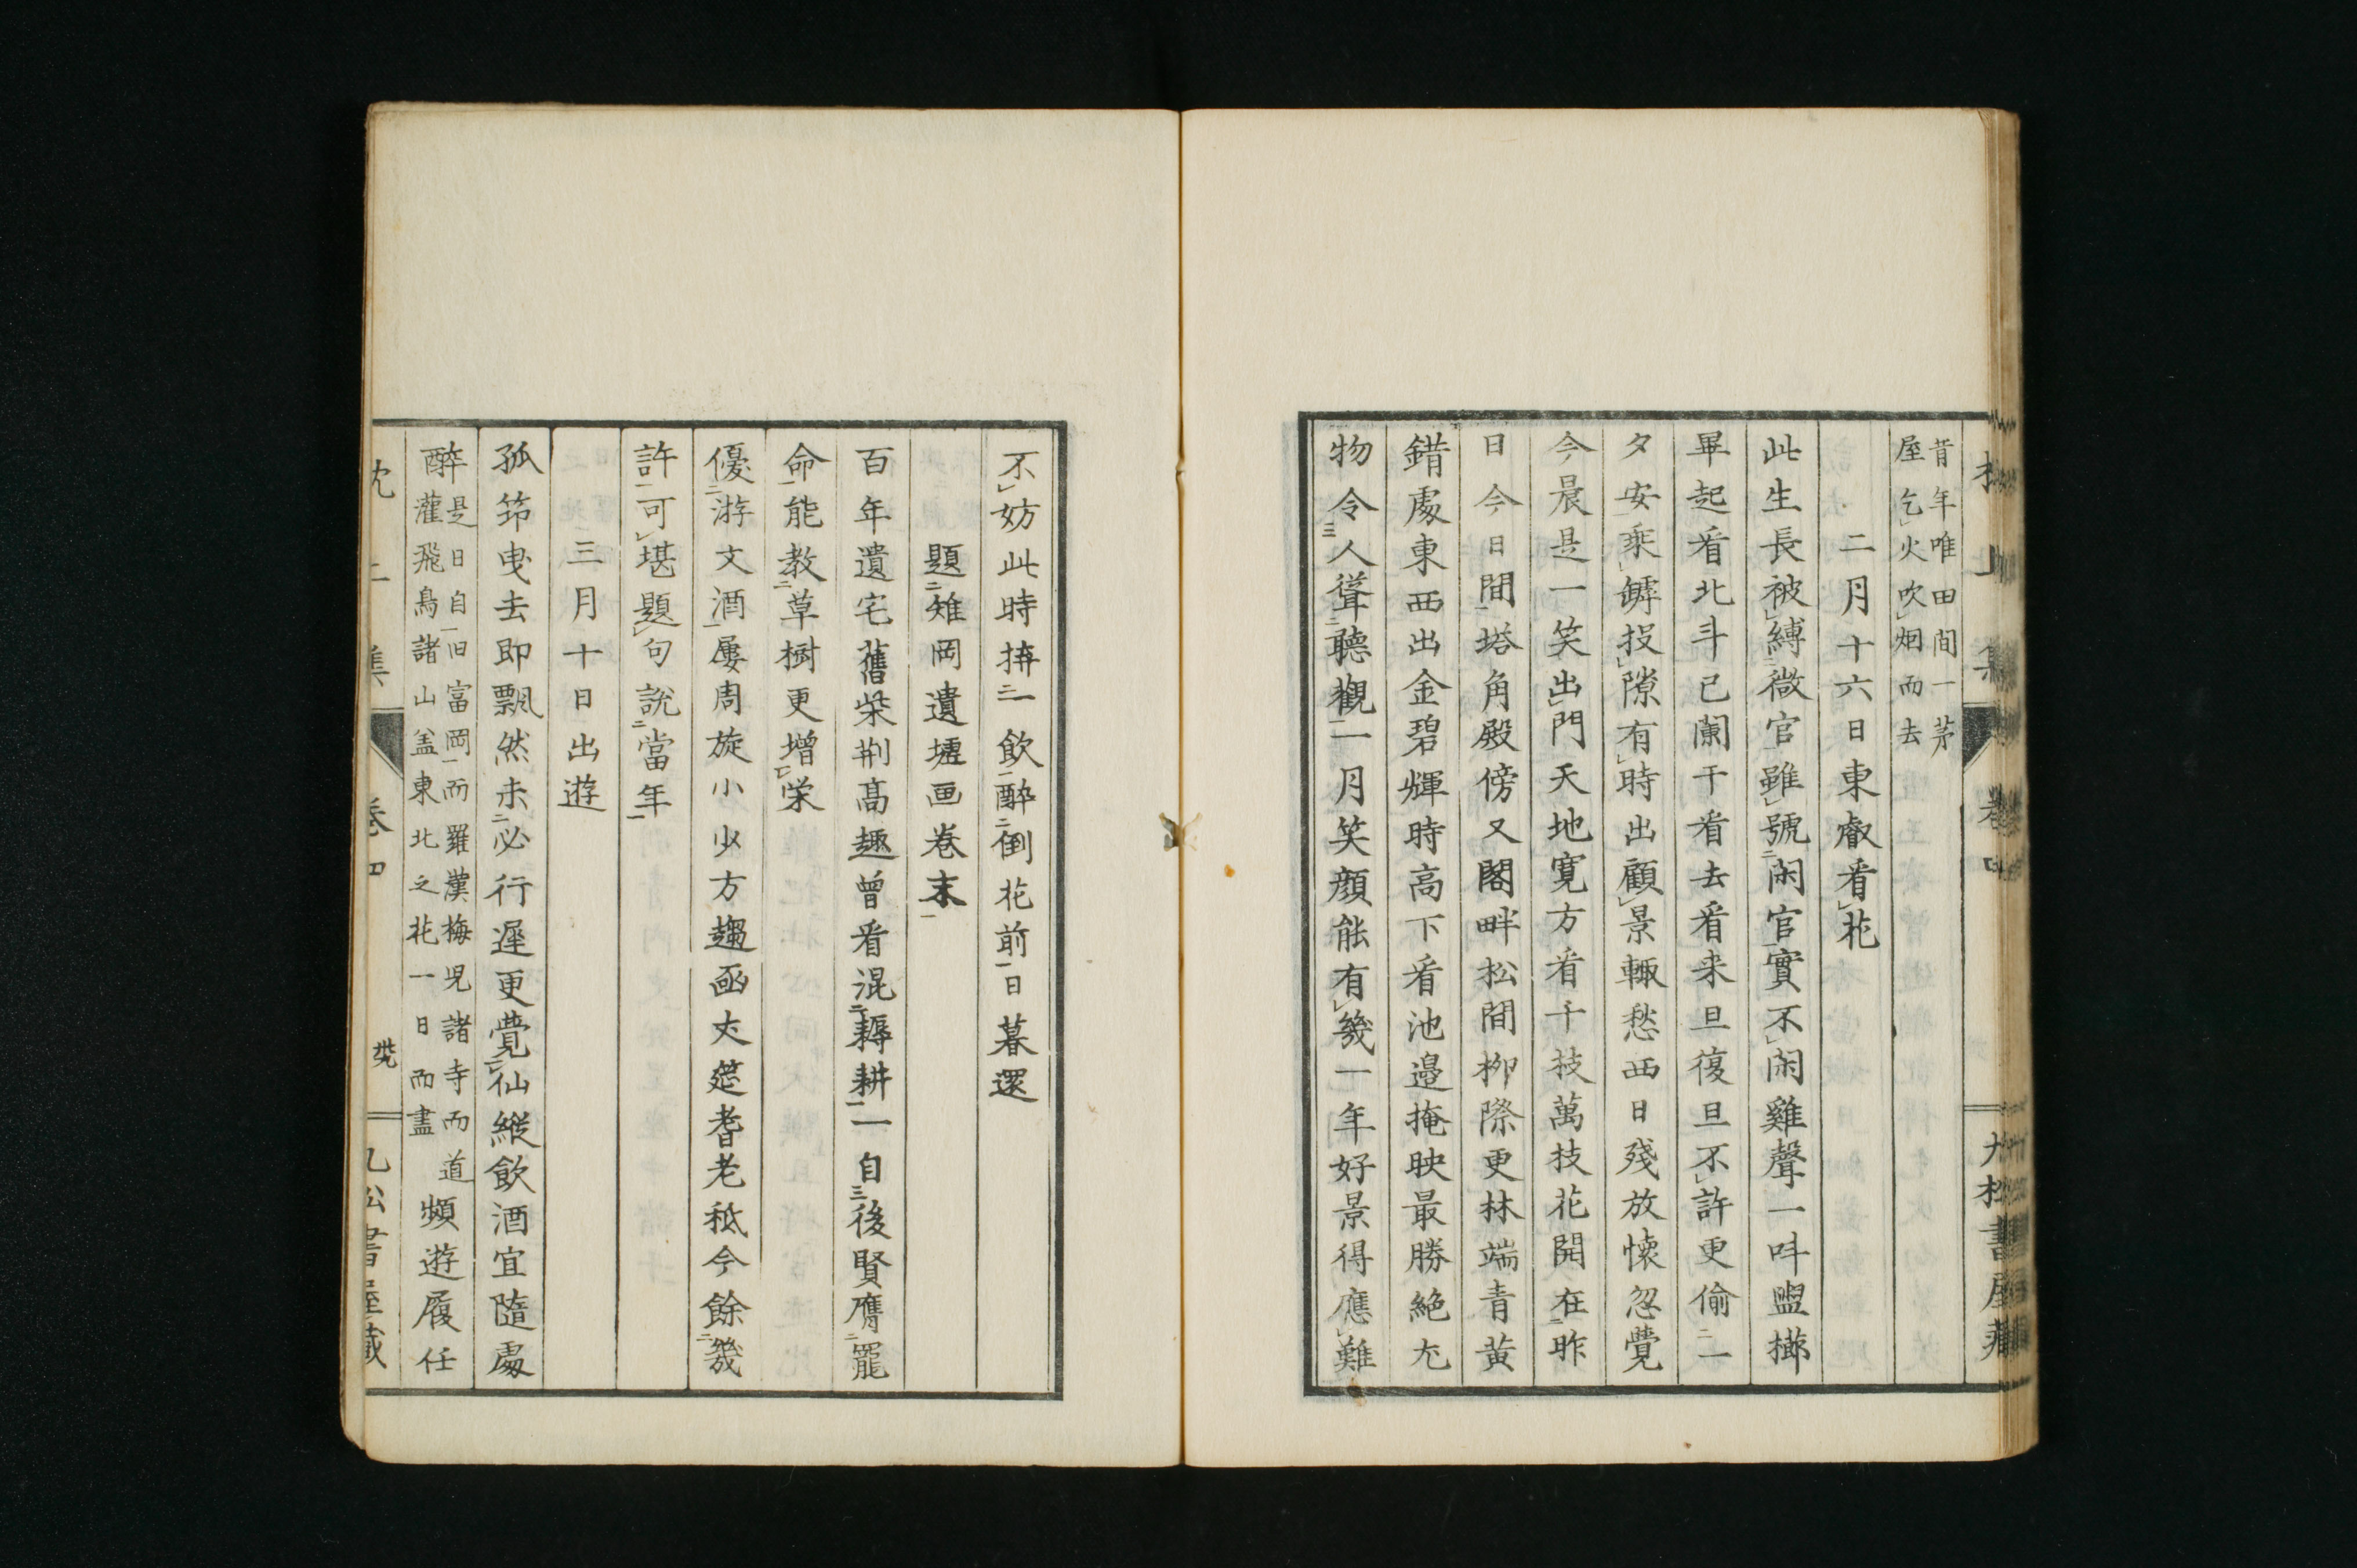 昔年唯田間一茅
屋乞火吹烟而去
二月十六日東叡看花
此生長被縛微官雖號閑官實不閑雞聲一呌盥櫛
畢起看北斗已闌干看去看来旦復旦不許更偷一
夕安乘罅投隙有時出顧景輙愁西日殘放懐忽覺
今晨是一笑出門天地寛方看千技萬技花開在昨
日今日間塔角殿傍又閣畔松間柳際更林端青黄
錯處東西出金碧輝時高下看池邉掩映最勝絶尤
物令人聳聽觀一月笑顔能有幾一年好景得應難
不妨此時拚一飲醉倒花前日暮還
題雉岡遺壚画巻末
百年遺宅舊柴荆髙趣曾看混耨耕一自後賢膺罷
命能教草樹更增栄
優游文酒屢周旋小少方趨函丈筵耆老秪今餘幾
許可堪題句説當年
三月十日出遊
孤筇曳去即飄然未必行遲更覺仙縱飲酒宜隨處
酔是日自旧富岡而羅漢梅児諸寺而道
灌飛鳥諸山盖東北之花一日而盡頻遊履任
上集 巻四
九松書屋藏